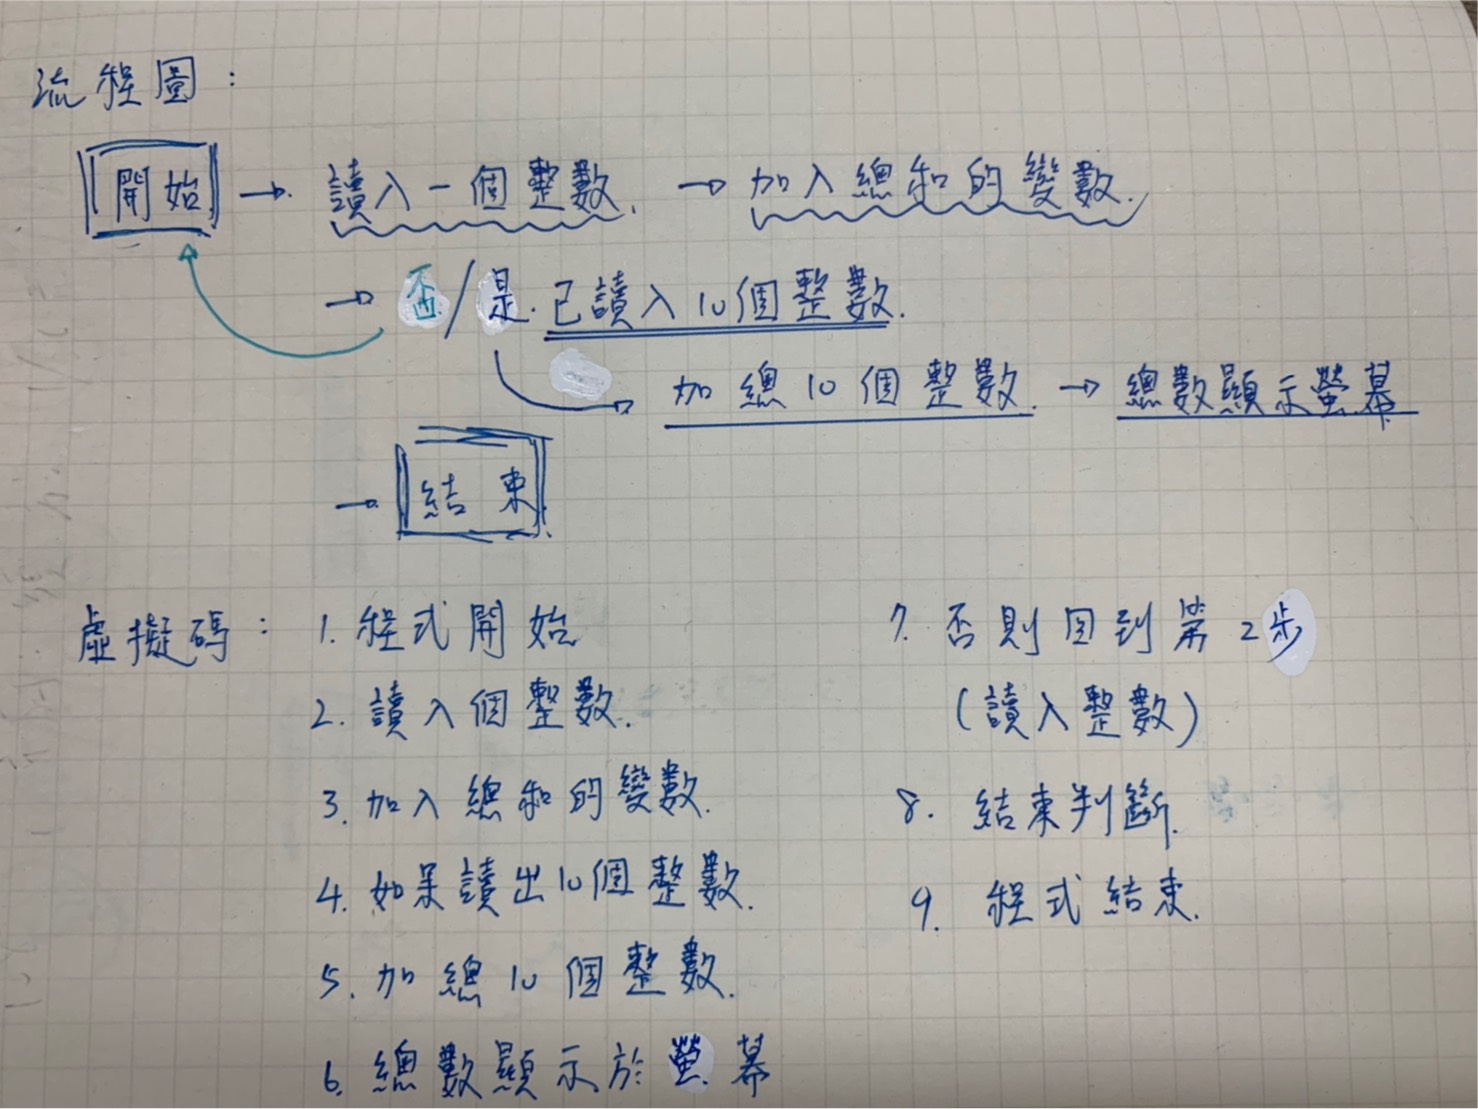 流程圖：
開始 → 讀入一個整數. → 加入總和的變數.
→ 否/是. 已讀入10個整數.
加總10個整數. → 總數顯示螢幕
→ 結束
虛擬碼： 1. 程式開始
2. 讀入個整數.
3. 加入總和的變數.
4. 如果讀出10個整數.
5. 加總10個整數.
6. 總數顯示於螢幕
7. 否則回到第2步
(讀入整數)
8. 結束判斷.
9. 程式結束.